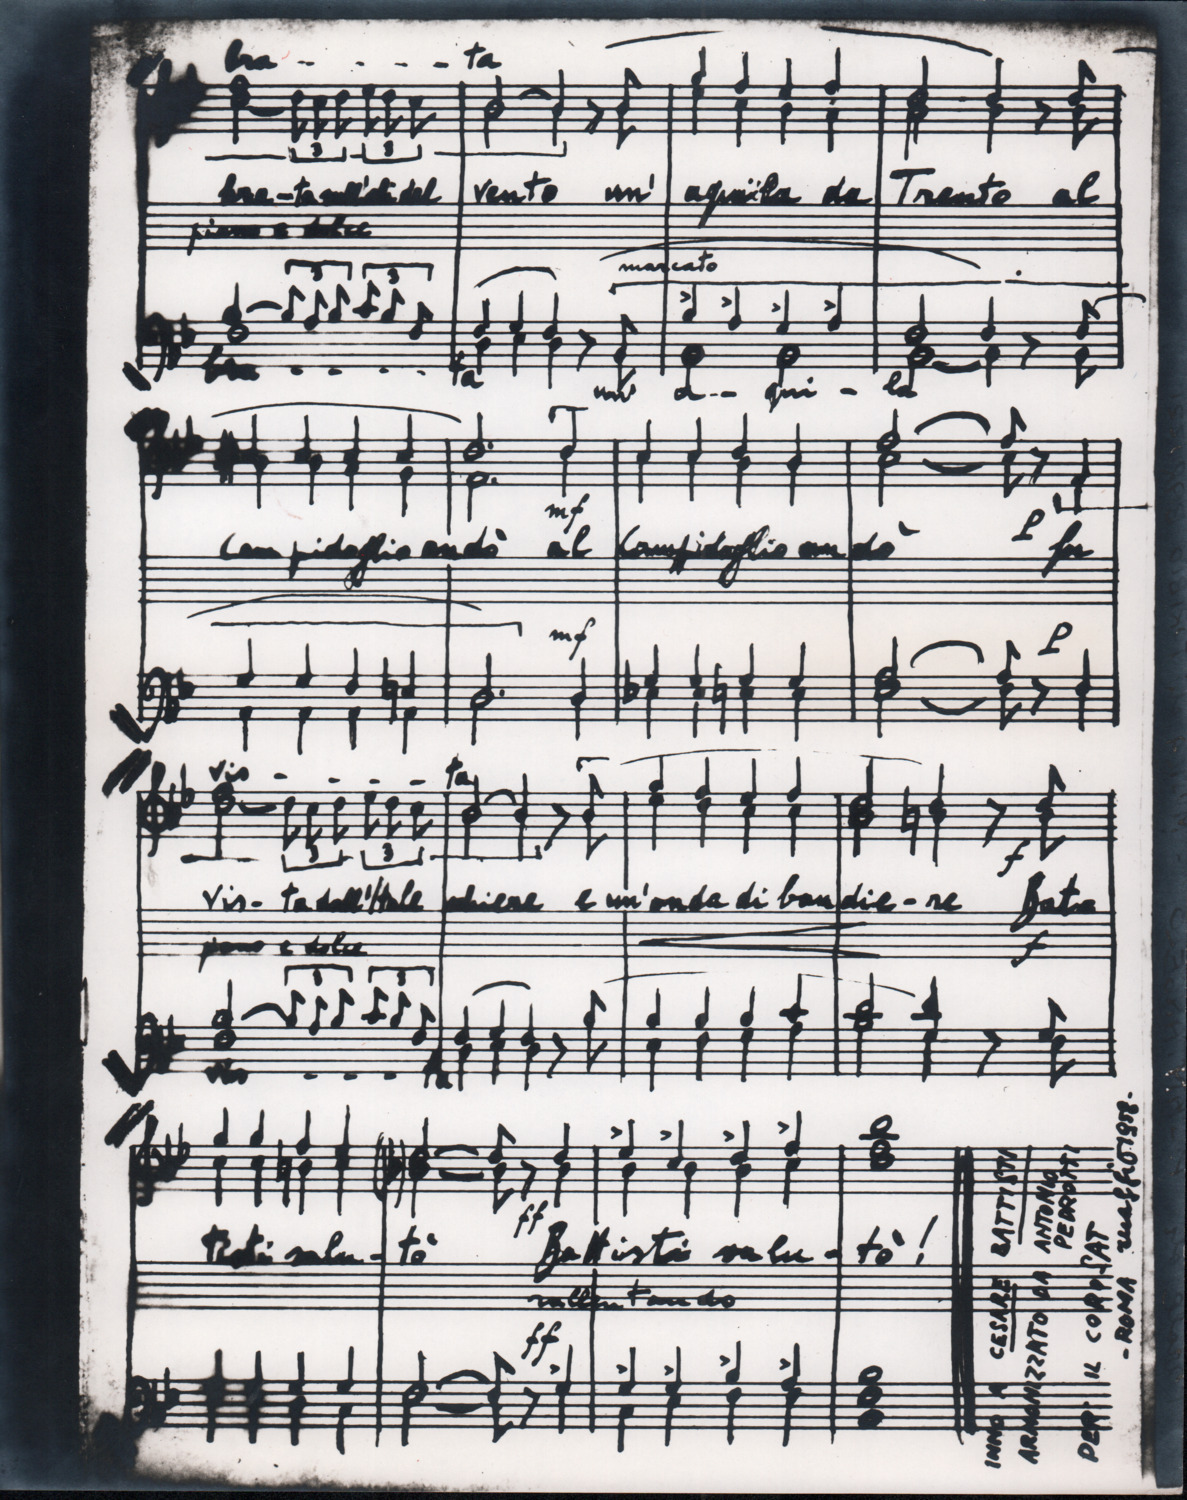 bra - - - - ta
3 3
bra-ta sull'ali del vento un' aquila da Trento al
piano e dolce
marcato
3 3
bra - - - - ta un' a-- qui - la
mf
P
Campidoglio andò al Campidoglio andò fu
mf P
vis - - - - ta
3 3
f
vis- ta dall'Itale schiere e un'onda di bandie-re Batti
piano e dolce
f
3 3
vis - - - ta
ff
tisti salu-tò Battisti salu-tò!
rallentando
ff
INNO A CESARE BATTISTI
ARMONIZZATO DA ANTONIO
PEDROTTI
PER IL CORO SAT
-ROMA